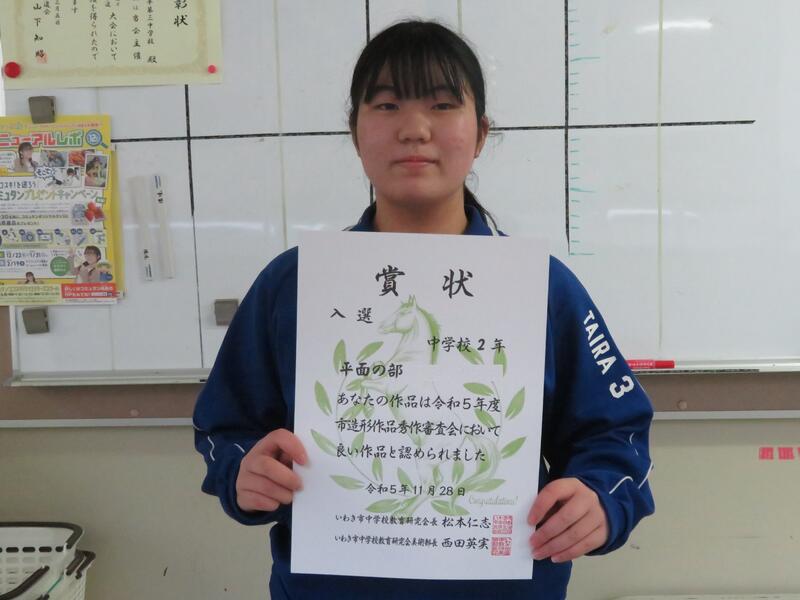 彰状
第三中学校 殿
は当会主催
大会において
を得られたので
ます
山下知昭
ニューアルレポ
コミュタンプレゼントキャンペーン
賞状
入選
中学校2年
平面の部
あなたの作品は令和5年度
市造形作品秀作審査会において
良い作品と認められました
令和5年11月28日
Congratulations!
いわき市中学校教育研究会長 松本仁志
いわき市中学校教育研究会美術部長 西田英実
TAIRA 3